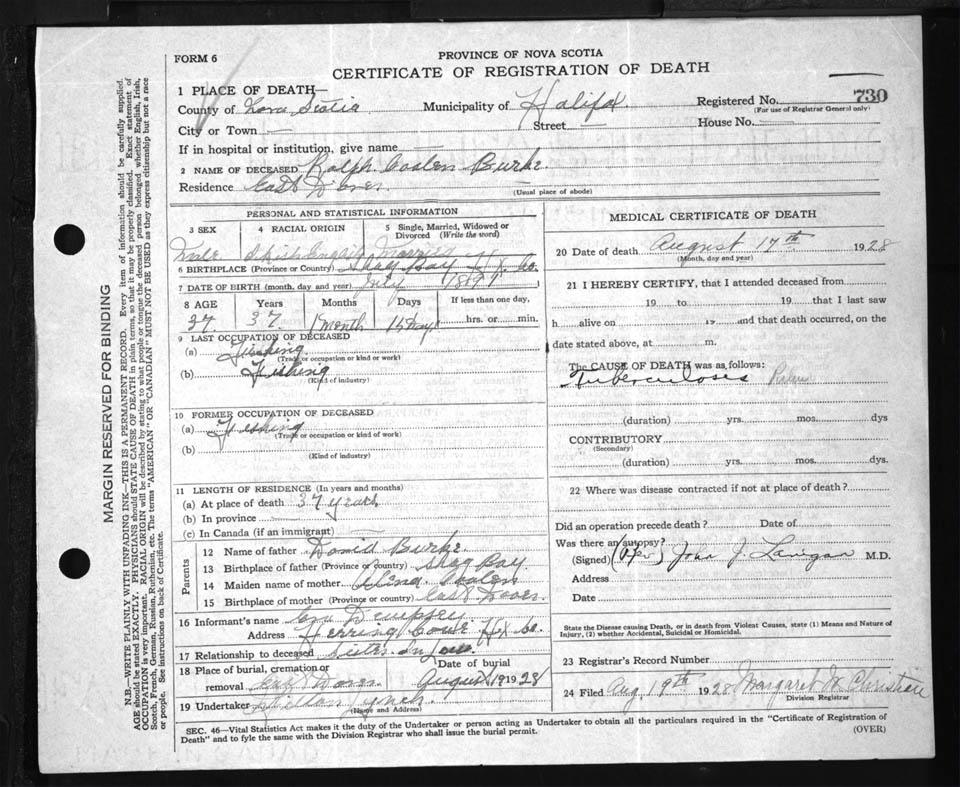 FORM 6
PROVINCE OF NOVA SCOTIA
CERTIFICATE OF REGISTRATION OF DEATH
1 PLACE OF DEATH—
County of Nova Scotia Municipality of Halifax Registered No. 730
(For use of Registrar General only)
City or Town — Street — House No. —
If in hospital or institution, give name —
2 NAME OF DECEASED Ralph Coolen Burke
Residence East Dover
(Usual place of abode)
PERSONAL AND STATISTICAL INFORMATION
3 SEX 4 RACIAL ORIGIN 5 Single, Married, Widowed or Divorced (Write the word)
Male English Married
6 BIRTHPLACE (Province or Country) Shag Bay Hfx Co.
7 DATE OF BIRTH (month, day and year) July 1891
8 AGE Years Months Days If less than one day,
37 37 1 month 15 days hrs. or min.
9 LAST OCCUPATION OF DECEASED
(a) Fishing
(Trade or occupation or kind of work)
(b) Fishing
(Kind of industry)
10 FORMER OCCUPATION OF DECEASED
(a) Fishing
(Trade or occupation or kind of work)
(b)
(Kind of industry)
11 LENGTH OF RESIDENCE (In years and months)
(a) At place of death 37 years
(b) In province —
(c) In Canada (if an immigrant) —
Parents
12 Name of father David Burke
13 Birthplace of father (Province or country) Shag Bay
14 Maiden name of mother Coolen
15 Birthplace of mother (Province or country) East Dover
16 Informant's name Dempsey
Address Herring Cove Hfx Co.
17 Relationship to deceased Sister in Law
18 Place of burial, cremation or removal East Dover Date of burial August 19 1928
19 Undertaker Lynch
(Name and Address)
MEDICAL CERTIFICATE OF DEATH
20 Date of death August 17th 1928
(Month, day and year)
21 I HEREBY CERTIFY, that I attended deceased from
19 to 19 that I last saw
h alive on 19 and that death occurred, on the
date stated above, at m.
The CAUSE OF DEATH was as follows:
Tuberculoses
(duration) yrs. mos. dys
CONTRIBUTORY
(Secondary)
(duration) yrs. mos. dys.
22 Where was disease contracted if not at place of death?
Did an operation precede death? Date of
Was there an autopsy?
(Signed) (Per) John J. Lanigan M.D.
Address
Date
State the Disease causing Death, or in death from Violent Causes, state (1) Means and Nature of Injury, (2) whether Accidental, Suicidal or Homicidal.
23 Registrar's Record Number
24 Filed Aug. 19th 1928 Margaret M Christian
Division Registrar
SEC. 46—Vital Statistics Act makes it the duty of the Undertaker or person acting as Undertaker to obtain all the particulars required in the "Certificate of Registration of
Death" and to fyle the same with the Division Registrar who shall issue the burial permit. (OVER)
MARGIN RESERVED FOR BINDING
N.B.—WRITE PLAINLY WITH UNFADING INK—THIS IS A PERMANENT RECORD. Every item of information should be carefully supplied.
AGE should be stated EXACTLY. PHYSICIANS should STATE CAUSE OF DEATH in plain terms, so that it may be properly classified. Exact statement of
OCCUPATION is very important. RACIAL ORIGIN will be described by stating to what people or tongue the deceased person belonged whether English, Irish,
Scotch, French, German, Russian, Ruthenian, etc. The terms "AMERICAN" or "CANADIAN" MUST NOT BE USED as they express citizenship but not a race
or people. See instructions on back of Certificate.